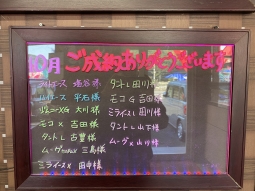 10月ご成約ありがとうございます
ハイエース 塩谷様
ハイエース 平石様
大川様
モコX 吉田様
タントL 古豊様
ムーヴ 三島様
ミライースX 田中様
タントL 田川様
モコG 吉田様
ミライースL 田川様
タントL 山下様
ムーヴX 山川様